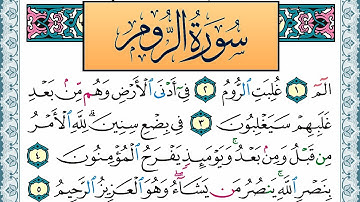 سُورَةُ الرُّومِ
الٓمٓ ١ غُلِبَتِ ٱلرُّومُ ٢ فِىٓ أَدْنَى ٱلْأَرْضِ وَهُم مِّنۢ بَعْدِ
غَلَبِهِمْ سَيَغْلِبُونَ ٣ فِى بِضْعِ سِنِينَ ۗ لِلَّهِ ٱلْأَمْرُ
مِن قَبْلُ وَمِنۢ بَعْدُ ۚ وَيَوْمَئِذٍ يَفْرَحُ ٱلْمُؤْمِنُونَ ٤
بِنَصْرِ ٱللَّهِ ۚ يَنصُرُ مَن يَشَآءُ ۖ وَهُوَ ٱلْعَزِيزُ ٱلرَّحِيمُ ٥